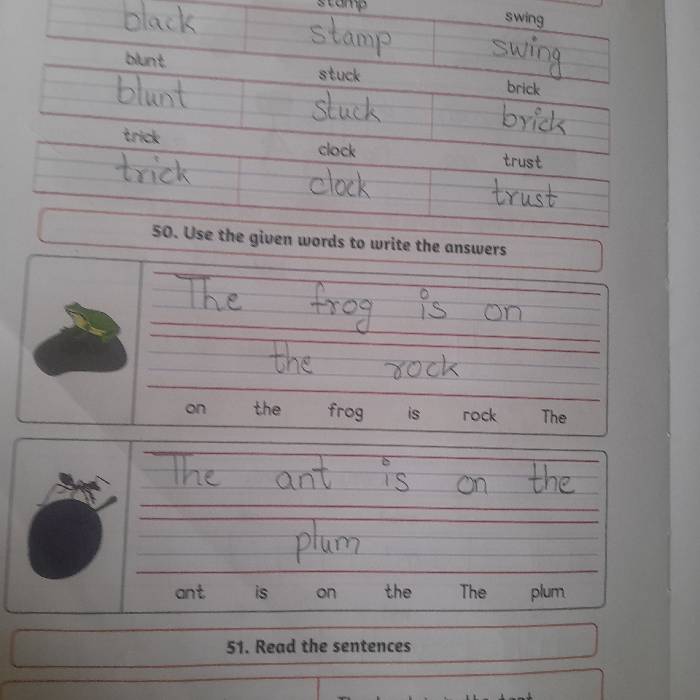 stamp swing
black stamp swing
blunt stuck brick
blunt stuck brick
trick clock trust
trick clock trust
50. Use the given words to write the answers
The frog is on
the rock
on the frog is rock The
The ant is on the
plum
ant is on the The plum
51. Read the sentences